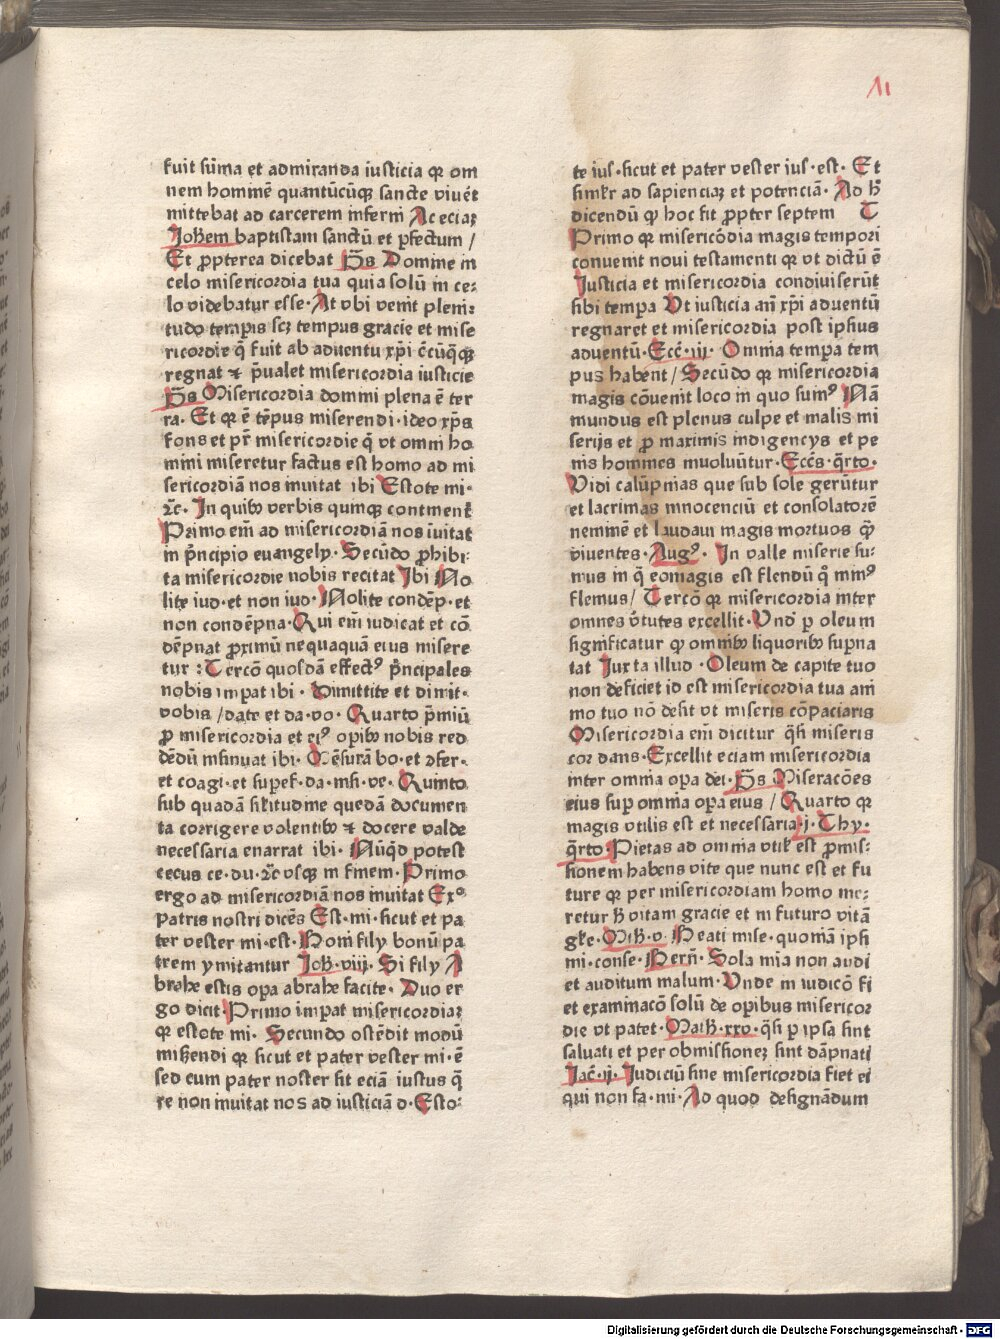 fuit sūma et admiranda iusticia qꝛ om
nem hominē quantūcūqꝫ sancte viuēt
mittebat ad carcerem inferni Ac eciaꝫ
Johēm baptistam sanctū et pfectum /
Et ꝓpterea dicebat p̄s Domine in
celo misericordia tua quia solū in ce-
lo videbatur esse · At vbi venit pleni:
tudo temp̄is scꝫ tempus gracie et mise
ricordie q̄ fuit ab aduentu xp̄i c̄cūqꝫqꝫ
regnat ⁊ p̄ualet misericordia iusticie
p̄s Misericordia domini plena ē ter
ra · Et qꝛ ē tēpus miserendi · ideo xp̄s
fons et pr̄ misericordie q̄ vt omni ho
mini miseretur factus est homo ad mi
sericordiā nos inuitat ibi Estote mi ·
⁊c · In quibꝰ verbis quinqꝫ continent̄
Primo em̄ ad misericordiā nos īuitat
in p̄ncipio euangelij · Secūdo ꝓhibi-
ta misericordie nobis recitat Ibi No
lite iud · et non iud · Nolite condēp · et
non condēpna · Qui em̄ iudicat et cō
dēpnat ꝓximū nequaquā eius misere
tur : Tercō quosdā effectꝰ p̄ncipales
nobis impat ibi · Dimittite et dimit ·
vobis / date et da · vo · Quarto p̄miū
ꝓ misericordia et eiꝰ opibꝰ nobis red
dēdū insinuat ibi · Mēsurā bo · et ꝯfer ·
et coagi · et supef · da · in si · ve · Quinto
sub quadā sil̄itudine quedā documen
ta corrigere volentibꝰ ⁊ docere valde
necessaria enarrat ibi · Nūqd potest
cecus ce · du · ⁊c vsqꝫ in finem · Primo
ergo ad misericordiā nos inuitat Exꝰ
patris nostri dicēs Est · mi · sicut et pa
ter vester mi · est · Boni filij bonū pa
trem ymitantur Joh̄ · viij · Si filij A
brahe estis opa abrahe facite · Duo er
go dicit Primo impat misericordiaꝫ
qꝛ estote mi · Secundo ostēdit modū
mis̄endi qꝛ sicut et pater vester mi · ē
sed cum pater noster sit eciā iustus q̄
re non inuitat nos ad iusticiā d · Esto-
te ius · sicut et pater vester ius · est · Et
simlr̄ ad sapienciaꝫ et potenciā · Ad h̄
dicendū ꝙ hoc fit ꝓpter septem
Primo qꝛ misericōdia magis tempori
conuenit noui testamenti qꝛ vt dictū ē
Justicia et misericordia condiuiserūt
sibi tempa Vt iusticia an̄ xp̄i aduentū
regnaret et misericordia post ipsius
aduentū · Ecc̄ · iij · Omnia tempa tem
pus habent / Secūdo qꝛ misericordia
magis cōuenit loco in quo sumꝰ Nā
mundus est plenus culpe et malis mi
serijs et ꝓ maximis indigencijs et pe
nis homines inuoluūtur · Ecc̄s · q̄rto ·
Vidi calūpnias que sub sole gerūtur
et lacrimas innocenciū et consolatorē
neminē et laudaui magis mortuos q̄
viuentes · Augꝰ · In valle miserie su:
mus in q̄ eo magis est flendū q̊ minꝰ
flemus / Tercō qꝛ misericordia inter
omnes v̄tutes excellit · Vnd̄ p oleum
significatur ꝙ omnibꝰ liquoribꝰ supna
tat Juxta illud · Oleum de capite tuo
non deficiet id est misericordia tua ani
mo tuo nō desit vt miseris cōpaciaris
Misericordia em̄ dicitur q̄si miseris
cor dans · Excellit eciam misericordia
inter omnia opa dei · p̄s Miseracōes
eius sup omnia opa eius / Quarto qꝛ
magis vtilis est et necessaria · j · Thy ·
q̄rto · Pietas ad omnia vtil̄ est ꝓmis-
sionem habens vite que nunc est et fu
ture qꝛ per misericordiam homo me:
retur h̄ vitam gracie et in futuro vitā
gl̄e · Math̄ · v · Beati mise · quoniā ipsi
mi · conse · Bern̄ · Sola mia non audi
et auditum malum · Vnde in iudicō fi
et examinacōn solū de opibus misericor
die vt patet · Math̄ · xxv · q̄si p ipsa sint
saluati et per obmissioneꝫ sint dāpnati
Jac̄ · ij · Judiciū sine misericordia fiet ei
qui non fa · mi · Ad quod designandum
Digitalisierung gefördert durch die Deutsche Forschungsgemeinschaft - DFG